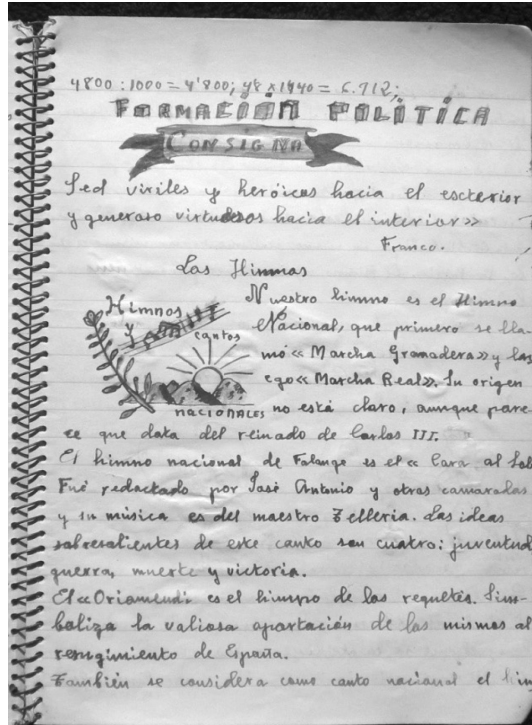 4800 : 1000 = 4'800; 4'8 x 1440 = 6.912;
FORMACIÓN POLÍTICA
CONSIGNA
Sed viriles y heróicos hacia el escterior
y generoso virtudesos hacia el interior»
Franco.
Los Himnos
Himnos
y
cantos
nacionales
Nuestro himno es el Himno
Nacional, que primero se lla-
mó «Marcha Granadera» y lue
ego «Marcha Real». Su origen
no está claro, aunque pare-
ce que data del reinado de Carlos III.
El himno nacional de Falange es el «Cara al Sol
Fué redactado por José Antonio y otros camaradas
y su música es del maestro Telleria. Las ideas
sobresalientes de este canto son cuatro: juventud
guerra, muerte y victoria.
El «Oriamendi» es el himno de los requetés. Sim-
boliza la valiosa aportación de los mismos al
resugimiento de España.
También se considera como canto nacional el him